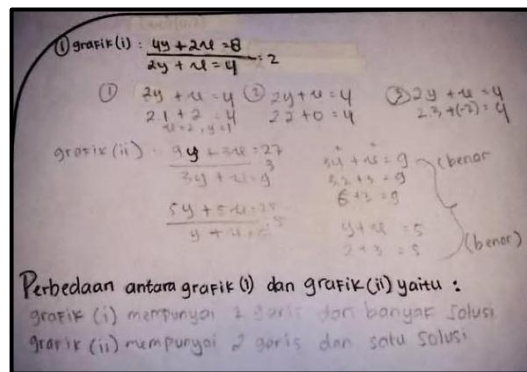 ① grafik (i) : 4y + 2x = 8
2y + x = 4 = 2
① 2y + x = 4 ② 2y + x = 4 ③ 2y + x = 4
2.1 + 2 = 4 2.2 + 0 = 4 2.3 + (-2) = 4
x = 2, y = 1
grafik (ii) : 9y + 3x = 27 3y + x = 9 (benar
3y + x = 9 3 3.2 + 3 = 9
6 + 3 = 9
5y + 5x = 25 y + x = 5
y + x = 5 2 + 3 = 5 (benar)
Perbedaan antara grafik (i) dan grafik (ii) yaitu :
grafik (i) mempunyai 1 garis dan banyak solusi
grafik (ii) mempunyai 2 garis dan satu solusi